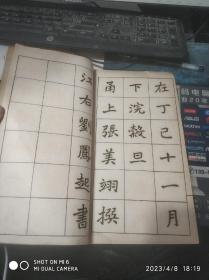 在丁巳十一月
下浣穀旦
甬上張美翊撰
江右劉鳳起書
SHOT ON MI 6
MI DUAL CAMERA
2023/4/8 18:19